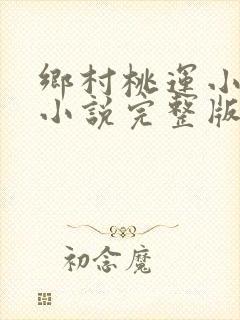 鄉村桃運小
小說完整版
初念魔